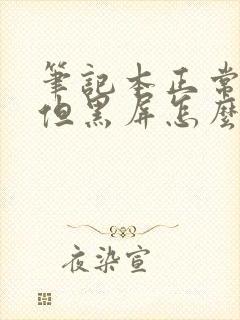 筆記本正常
但黑屏怎麼
夜染宣